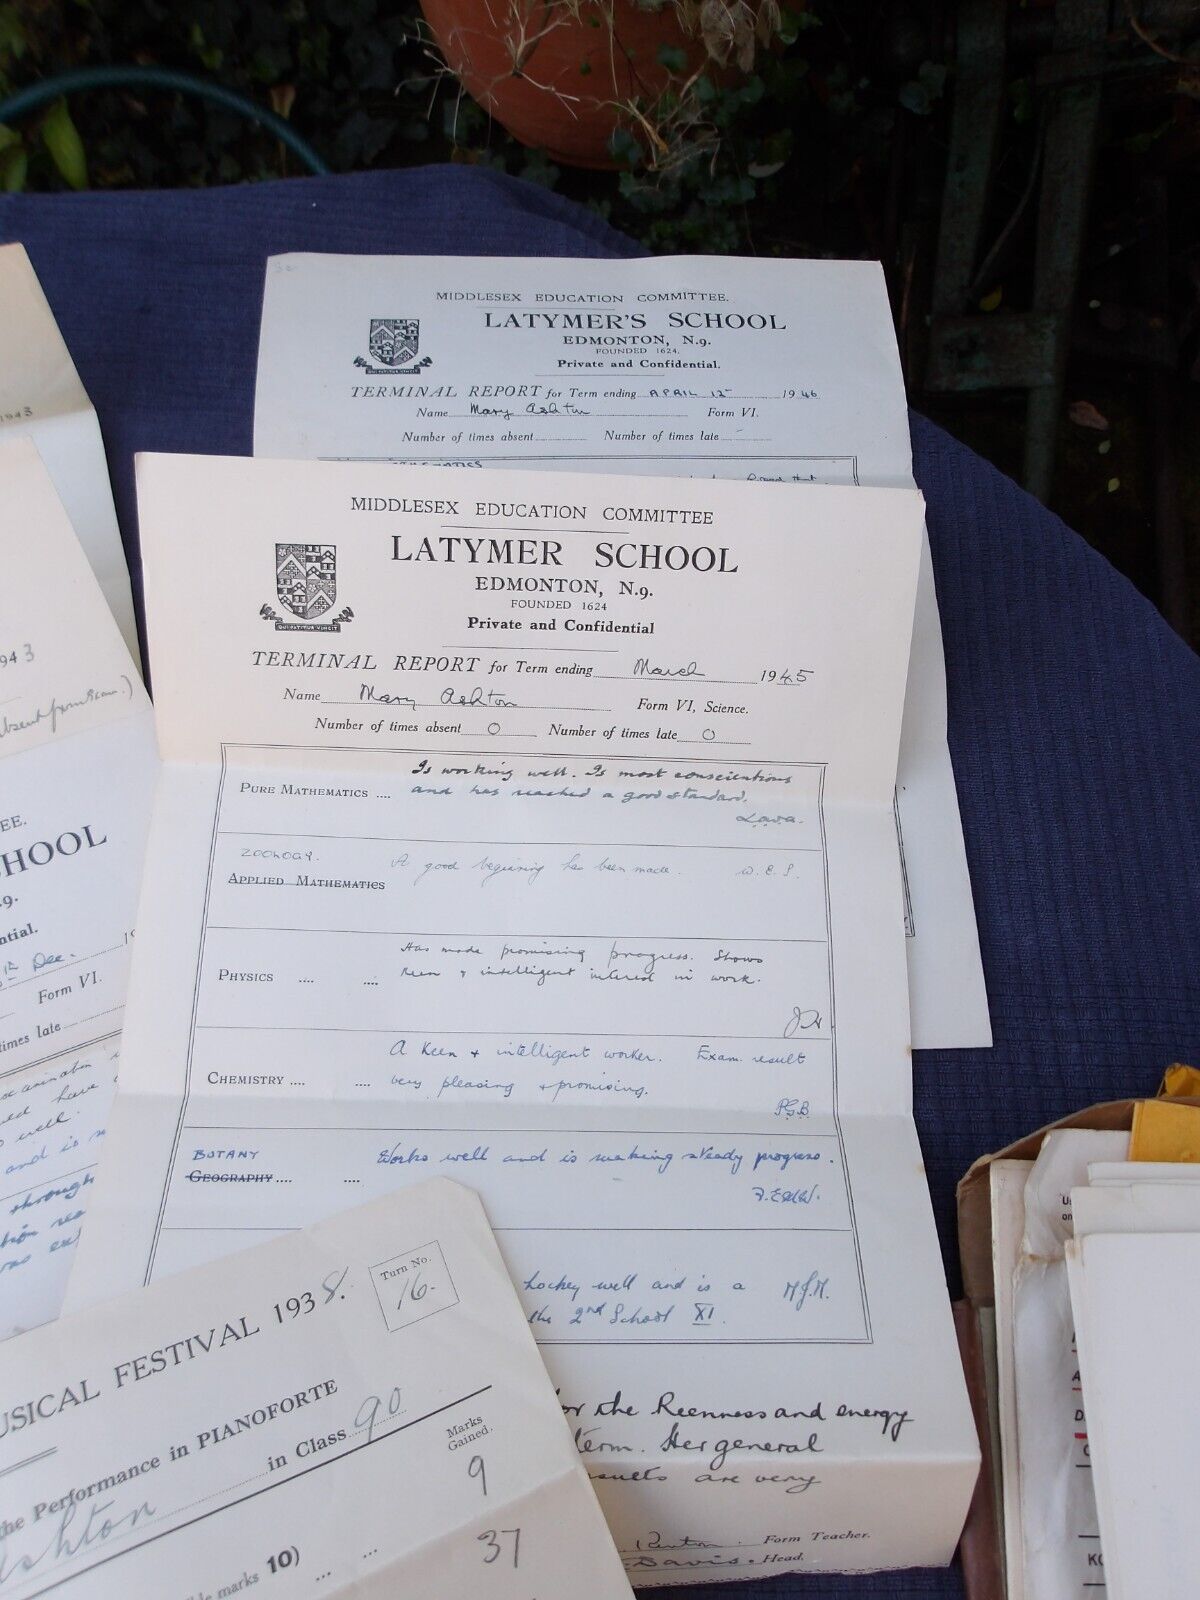 MIDDLESEX EDUCATION COMMITTEE.
LATYMER'S SCHOOL
EDMONTON, N.9.
FOUNDED 1624.
Private and Confidential.
TERMINAL REPORT for Term ending APRIL 12 1946
Name Mary Ashton Form VI.
Number of times absent Number of times late
MIDDLESEX EDUCATION COMMITTEE
LATYMER SCHOOL
EDMONTON, N.9.
FOUNDED 1624
QUI PATITUR VINCIT
Private and Confidential
TERMINAL REPORT for Term ending March 1945
Name Mary Ashton Form VI, Science.
Number of times absent 0 Number of times late 0
Is working well. Is most conscientious
PURE MATHEMATICS .... and has reached a good standard.
ZOOLOGY. A good beginning has been made. W.E.S.
APPLIED MATHEMATICS
Has made promising progress. Shows
PHYSICS .... .... keen & intelligent interest in work.
A keen & intelligent worker. Exam. result
CHEMISTRY .... .... very pleasing & promising.
P.G.B.
BOTANY Works well and is making steady progress.
GEOGRAPHY .... ....
hockey well and is a M.J.M.
the 2nd School XI.
for the keenness and energy
term. Her general
results are very
Form Teacher.
Davis. Head.
1943
1943
(Absent from Exam.)
EE.
CHOOL
.9.
ntial.
Dec. 19
Form VI.
times late
examination
have
well.
and is
through
USICAL FESTIVAL 1938.
Turn No.
16.
the Performance in PIANOFORTE
in Class 90
Ashton
Marks
Gained.
9
marks 10) ... ...
37
...